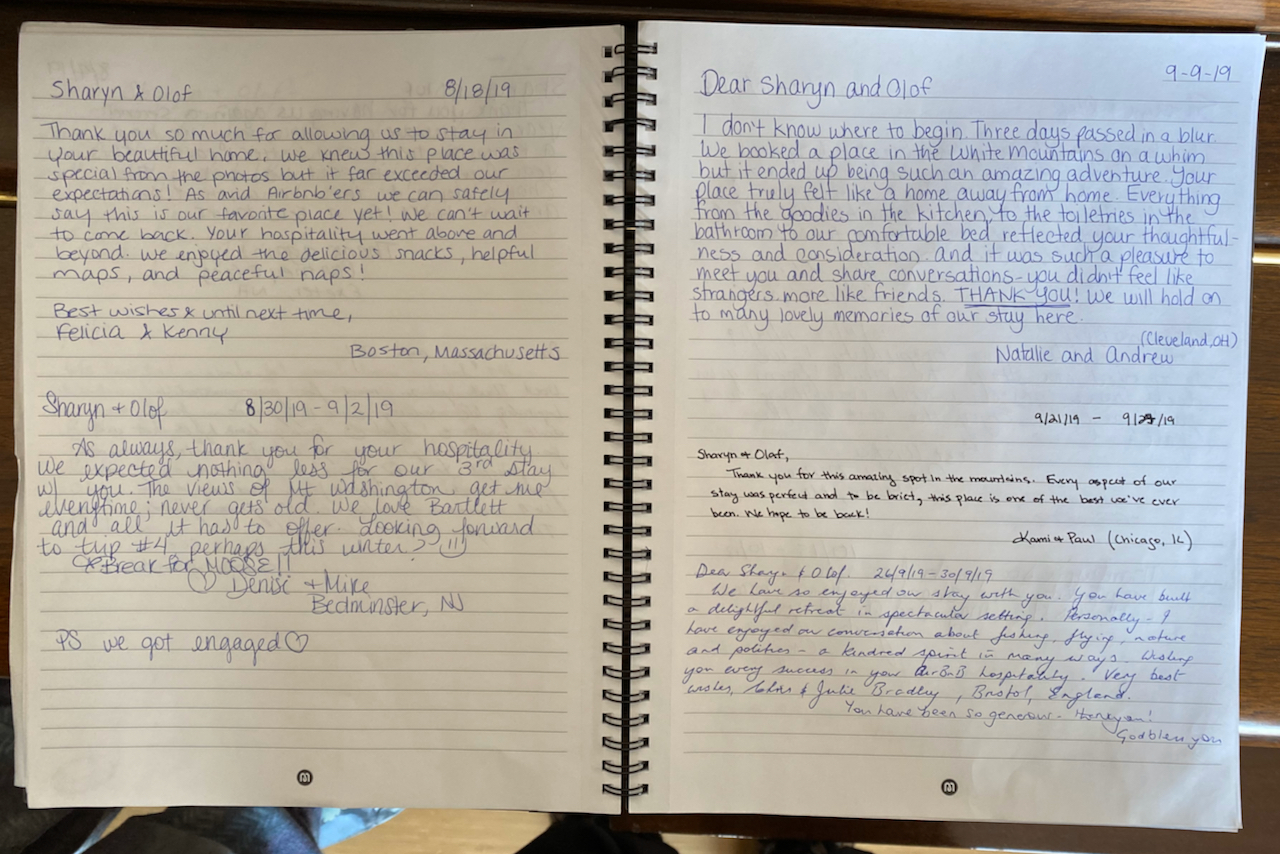 Sharyn & Olof 8/18/19
Thank you so much for allowing us to stay in
your beautiful home. We knew this place was
special from the photos but it far exceeded our
expectations! As avid Airbnb'ers we can safely
say this is our favorite place yet! We can't wait
to come back. Your hospitality went above and
beyond. We enjoyed the delicious snacks, helpful
maps, and peaceful naps!
Best wishes & until next time,
Felicia & Kenny
Boston, Massachusetts
Sharyn + Olof 8/30/19 - 9/2/19
As always, thank you for your hospitality
We expected nothing less for our 3rd stay
w/ you. The views of Mt Washington get me
everytime; never gets old. We love Bartlett
and all it has to offer. Looking forward
to trip #4 perhaps this winter?
*Break for MOOSE!!
♡ Denise + Mike
Bedminster, NJ
PS we got engaged ♡
9-9-19
Dear Sharyn and Olof
I don't know where to begin. Three days passed in a blur.
We booked a place in the White Mountains on a whim
but it ended up being such an amazing adventure. Your
place truly felt like a home away from home. Everything
from the goodies in the kitchen, to the toiletries in the
bathroom to our comfortable bed reflected your thoughtful-
ness and consideration. And it was such a pleasure to
meet you and share conversations - you didn't feel like
strangers more like friends. THANK YOU! We will hold on
to many lovely memories of our stay here.
(Cleveland, OH)
Natalie and Andrew
9/21/19 - 9/2 /19
Sharyn + Olaf,
Thank you for this amazing spot in the mountains. Every aspect of our
stay was perfect and to be brief, this place is one of the best we've ever
been. We hope to be back!
Kami + Paul (Chicago, IL)
Dear Sharyn & Olof. 26/9/19 - 30/9/19
We have so enjoyed our stay with you. You have built
a delightful retreat in spectacular setting. Personally - I
have enjoyed our conversation about fishing, flying, nature
and politics - a kindred spirit in many ways. Wishing
you every success in your AirBnB hospitality. Very best
wishes, Chris & Julie Bradley, Bristol, England.
You have been so generous - Thankyou!
God bless you